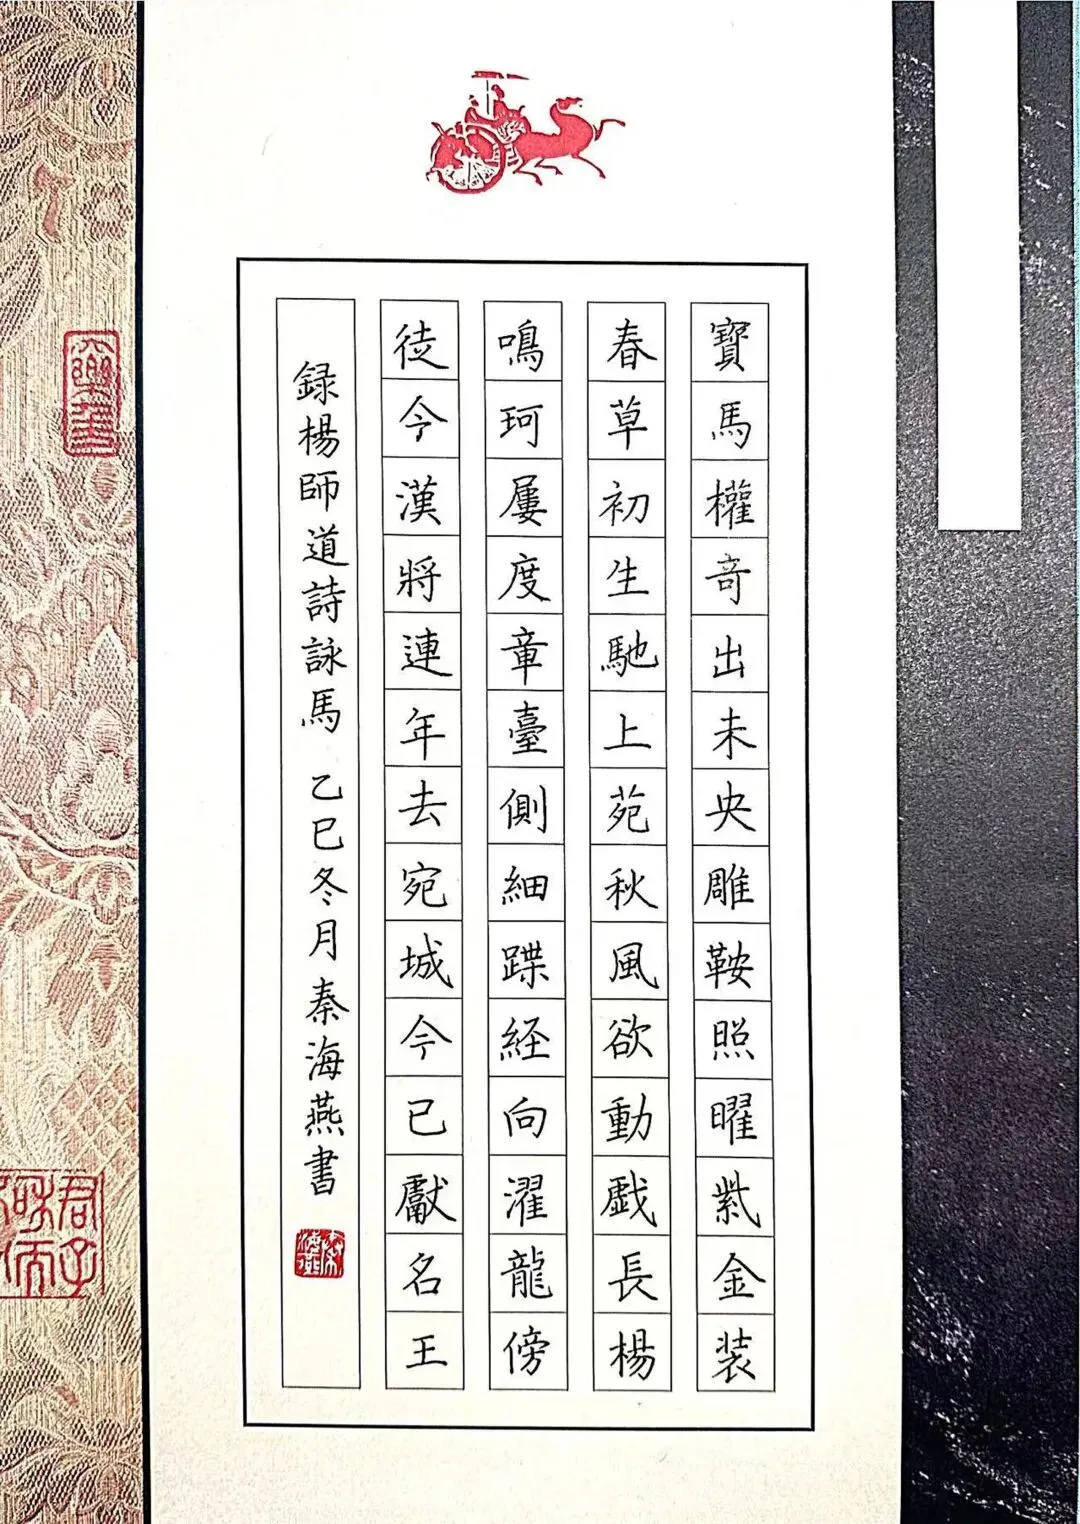 寶馬權奇出未央雕鞍照曜紫金装
春草初生馳上苑秋風欲動戯長楊
鳴珂屢度章臺側細蹀経向濯龍傍
徒令漢將連年去宛城今已獻名王
録楊師道詩詠馬 乙巳冬月秦海燕書